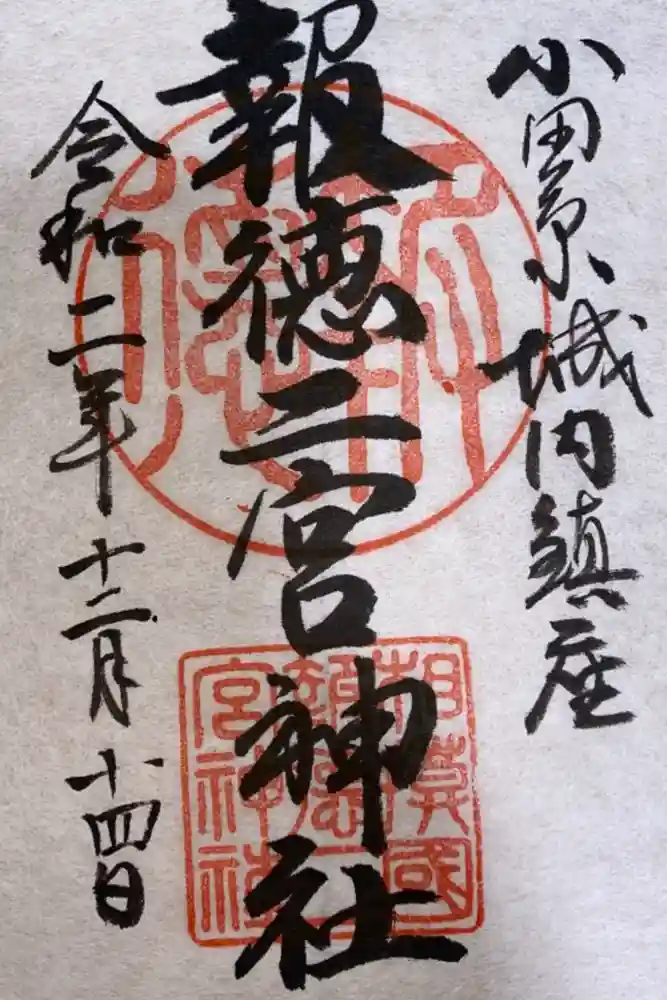 小田原城内鎮座
報徳二宮神社
令和二年十二月十四日
相模國
報德二
宮神社